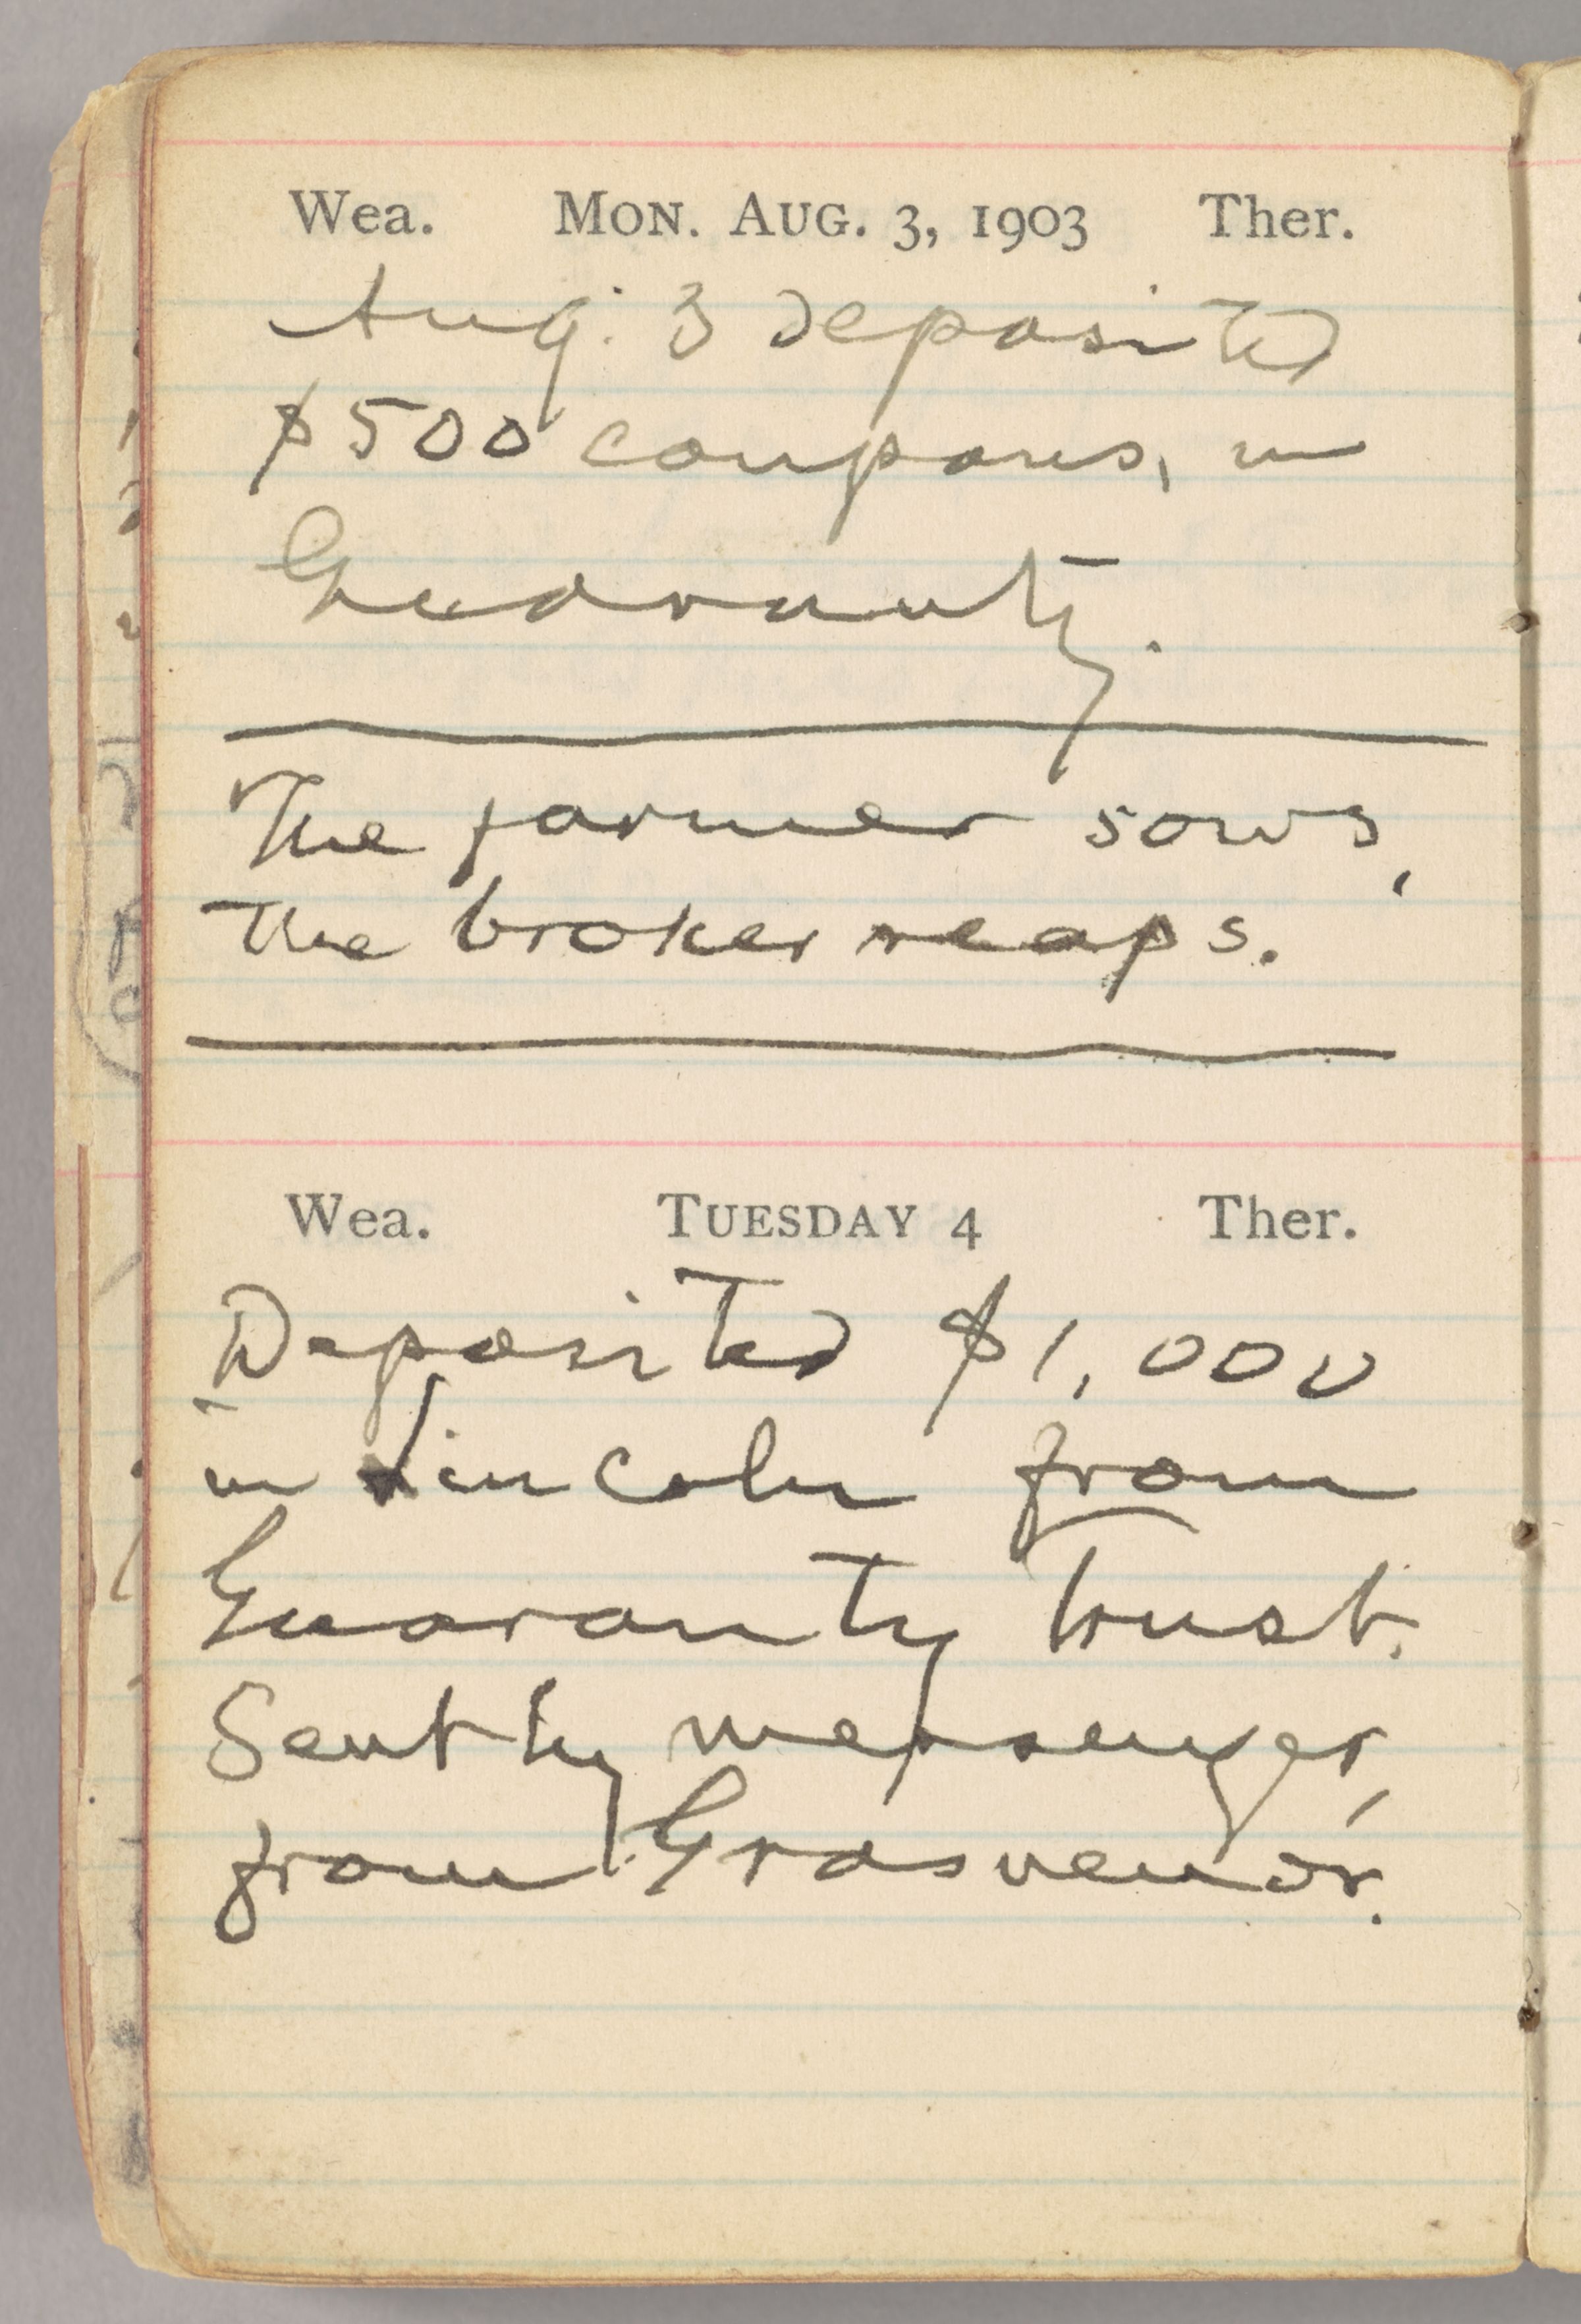 Wea. MON. AUG. 3, 1903 Ther.
Aug. 3 deposited
$500 coupons, in
Guaranty.
The farmer sows,
the broker reaps.
Wea. TUESDAY 4 Ther.
Deposited $1,000
in Lincoln from
Guaranty Trust.
Sent by messenger,
from Grosvenor.